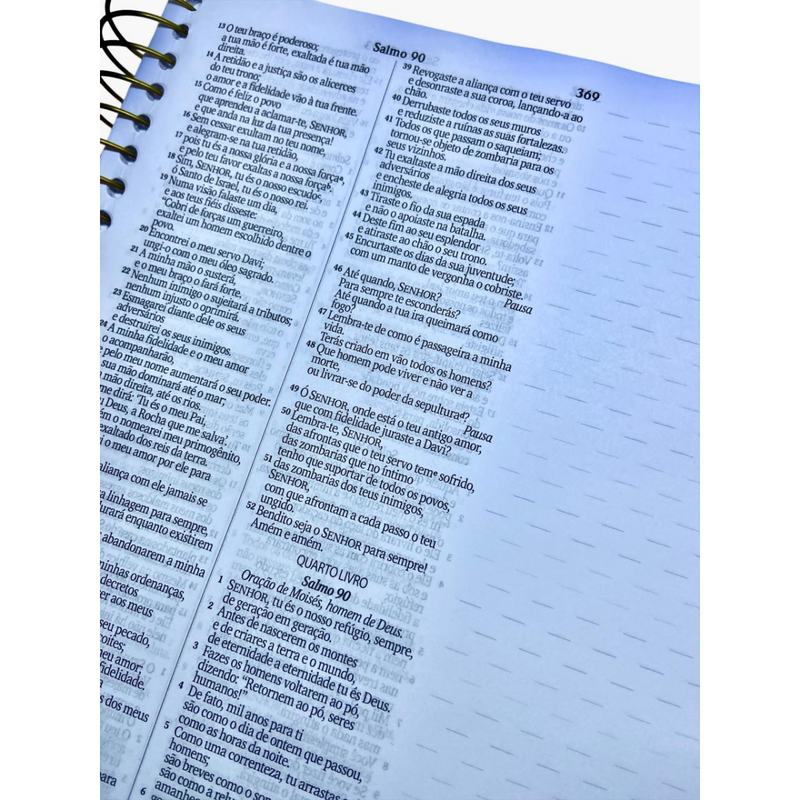 Salmo 90
369
13 O teu braço é poderoso;
a tua mão é forte, exaltada é tua mão
direita.
14 A retidão e a justiça são os alicerces
do teu trono;
o amor e a fidelidade vão à tua frente.
15 Como é feliz o povo
que aprendeu a aclamar-te, SENHOR,
e que anda na luz da tua presença!
16 Sem cessar exultam no teu nome,
e alegram-se na tua retidão,
17 pois tu és a nossa glória e a nossa força,
e pelo teu favor exaltas a nossa força.
18 Sim, SENHOR, tu és o nosso escudo,
ó Santo de Israel, tu és o nosso rei.
19 Numa visão falaste um dia,
e aos teus fiéis disseste:
"Cobri de forças um guerreiro,
exaltei um homem escolhido dentre o
povo.
20 Encontrei o meu servo Davi;
ungi-o com o meu óleo sagrado.
21 A minha mão o susterá,
e o meu braço o fará forte.
22 Nenhum inimigo o sujeitará a tributos;
nenhum injusto o oprimirá.
23 Esmagarei diante dele os seus
adversários
e destruirei os seus inimigos.
24 A minha fidelidade e o meu amor
o acompanharão,
pelo meu nome aumentará o seu poder.
sua mão dominará até o mar,
mão direita, até os rios.
me dirá: 'Tu és o meu Pai,
Deus, a Rocha que me salva'.
o nomearei meu primogênito,
exaltado dos reis da terra.
o meu amor por ele para
aliança com ele jamais se
linhagem para sempre,
durará enquanto existirem
abandonarem a minha
minhas ordenanças,
decretos
aos meus
seu pecado,
meu amor;
fidelidade.
dos meus
39 Revogaste a aliança com o teu servo
e desonraste a sua coroa, lançando-a ao
chão.
40 Derrubaste todos os seus muros
e reduziste a ruínas as suas fortalezas.
41 Todos os que passam o saqueiam;
tornou-se objeto de zombaria para os
seus vizinhos.
42 Tu exaltaste a mão direita dos seus
adversários
e encheste de alegria todos os seus
inimigos.
43 Tiraste o fio da sua espada
e não o apoiaste na batalha.
44 Deste fim ao seu esplendor
e atiraste ao chão o seu trono.
45 Encurtaste os dias da sua juventude;
com um manto de vergonha o cobriste.
Pausa
46 Até quando, SENHOR?
Para sempre te esconderás?
Até quando a tua ira queimará como
fogo?
47 Lembra-te de como é passageira a minha
vida.
Terás criado em vão todos os homens?
48 Que homem pode viver e não ver a
morte,
ou livrar-se do poder da sepultura?
Pausa
49 Ó SENHOR, onde está o teu antigo amor,
que com fidelidade juraste a Davi?
50 Lembra-te, SENHOR,
das afrontas que o teu servo tem sofrido,
das zombarias que no íntimo
tenho que suportar de todos os povos,
51 das zombarias dos teus inimigos,
SENHOR,
com que afrontam a cada passo o teu
ungido.
52 Bendito seja o SENHOR para sempre!
Amém e amém.
QUARTO LIVRO
Salmo 90
Oração de Moisés, homem de Deus.
1 SENHOR, tu és o nosso refúgio, sempre,
de geração em geração.
2 Antes de nascerem os montes
e de criares a terra e o mundo,
de eternidade a eternidade tu és Deus.
3 Fazes os homens voltarem ao pó,
dizendo: "Retornem ao pó, seres
humanos!"
4 De fato, mil anos para ti
são como o dia de ontem que passou,
como as horas da noite.
5 Como uma correnteza, tu arrastas os
homens;
são breves como o
são como a
6